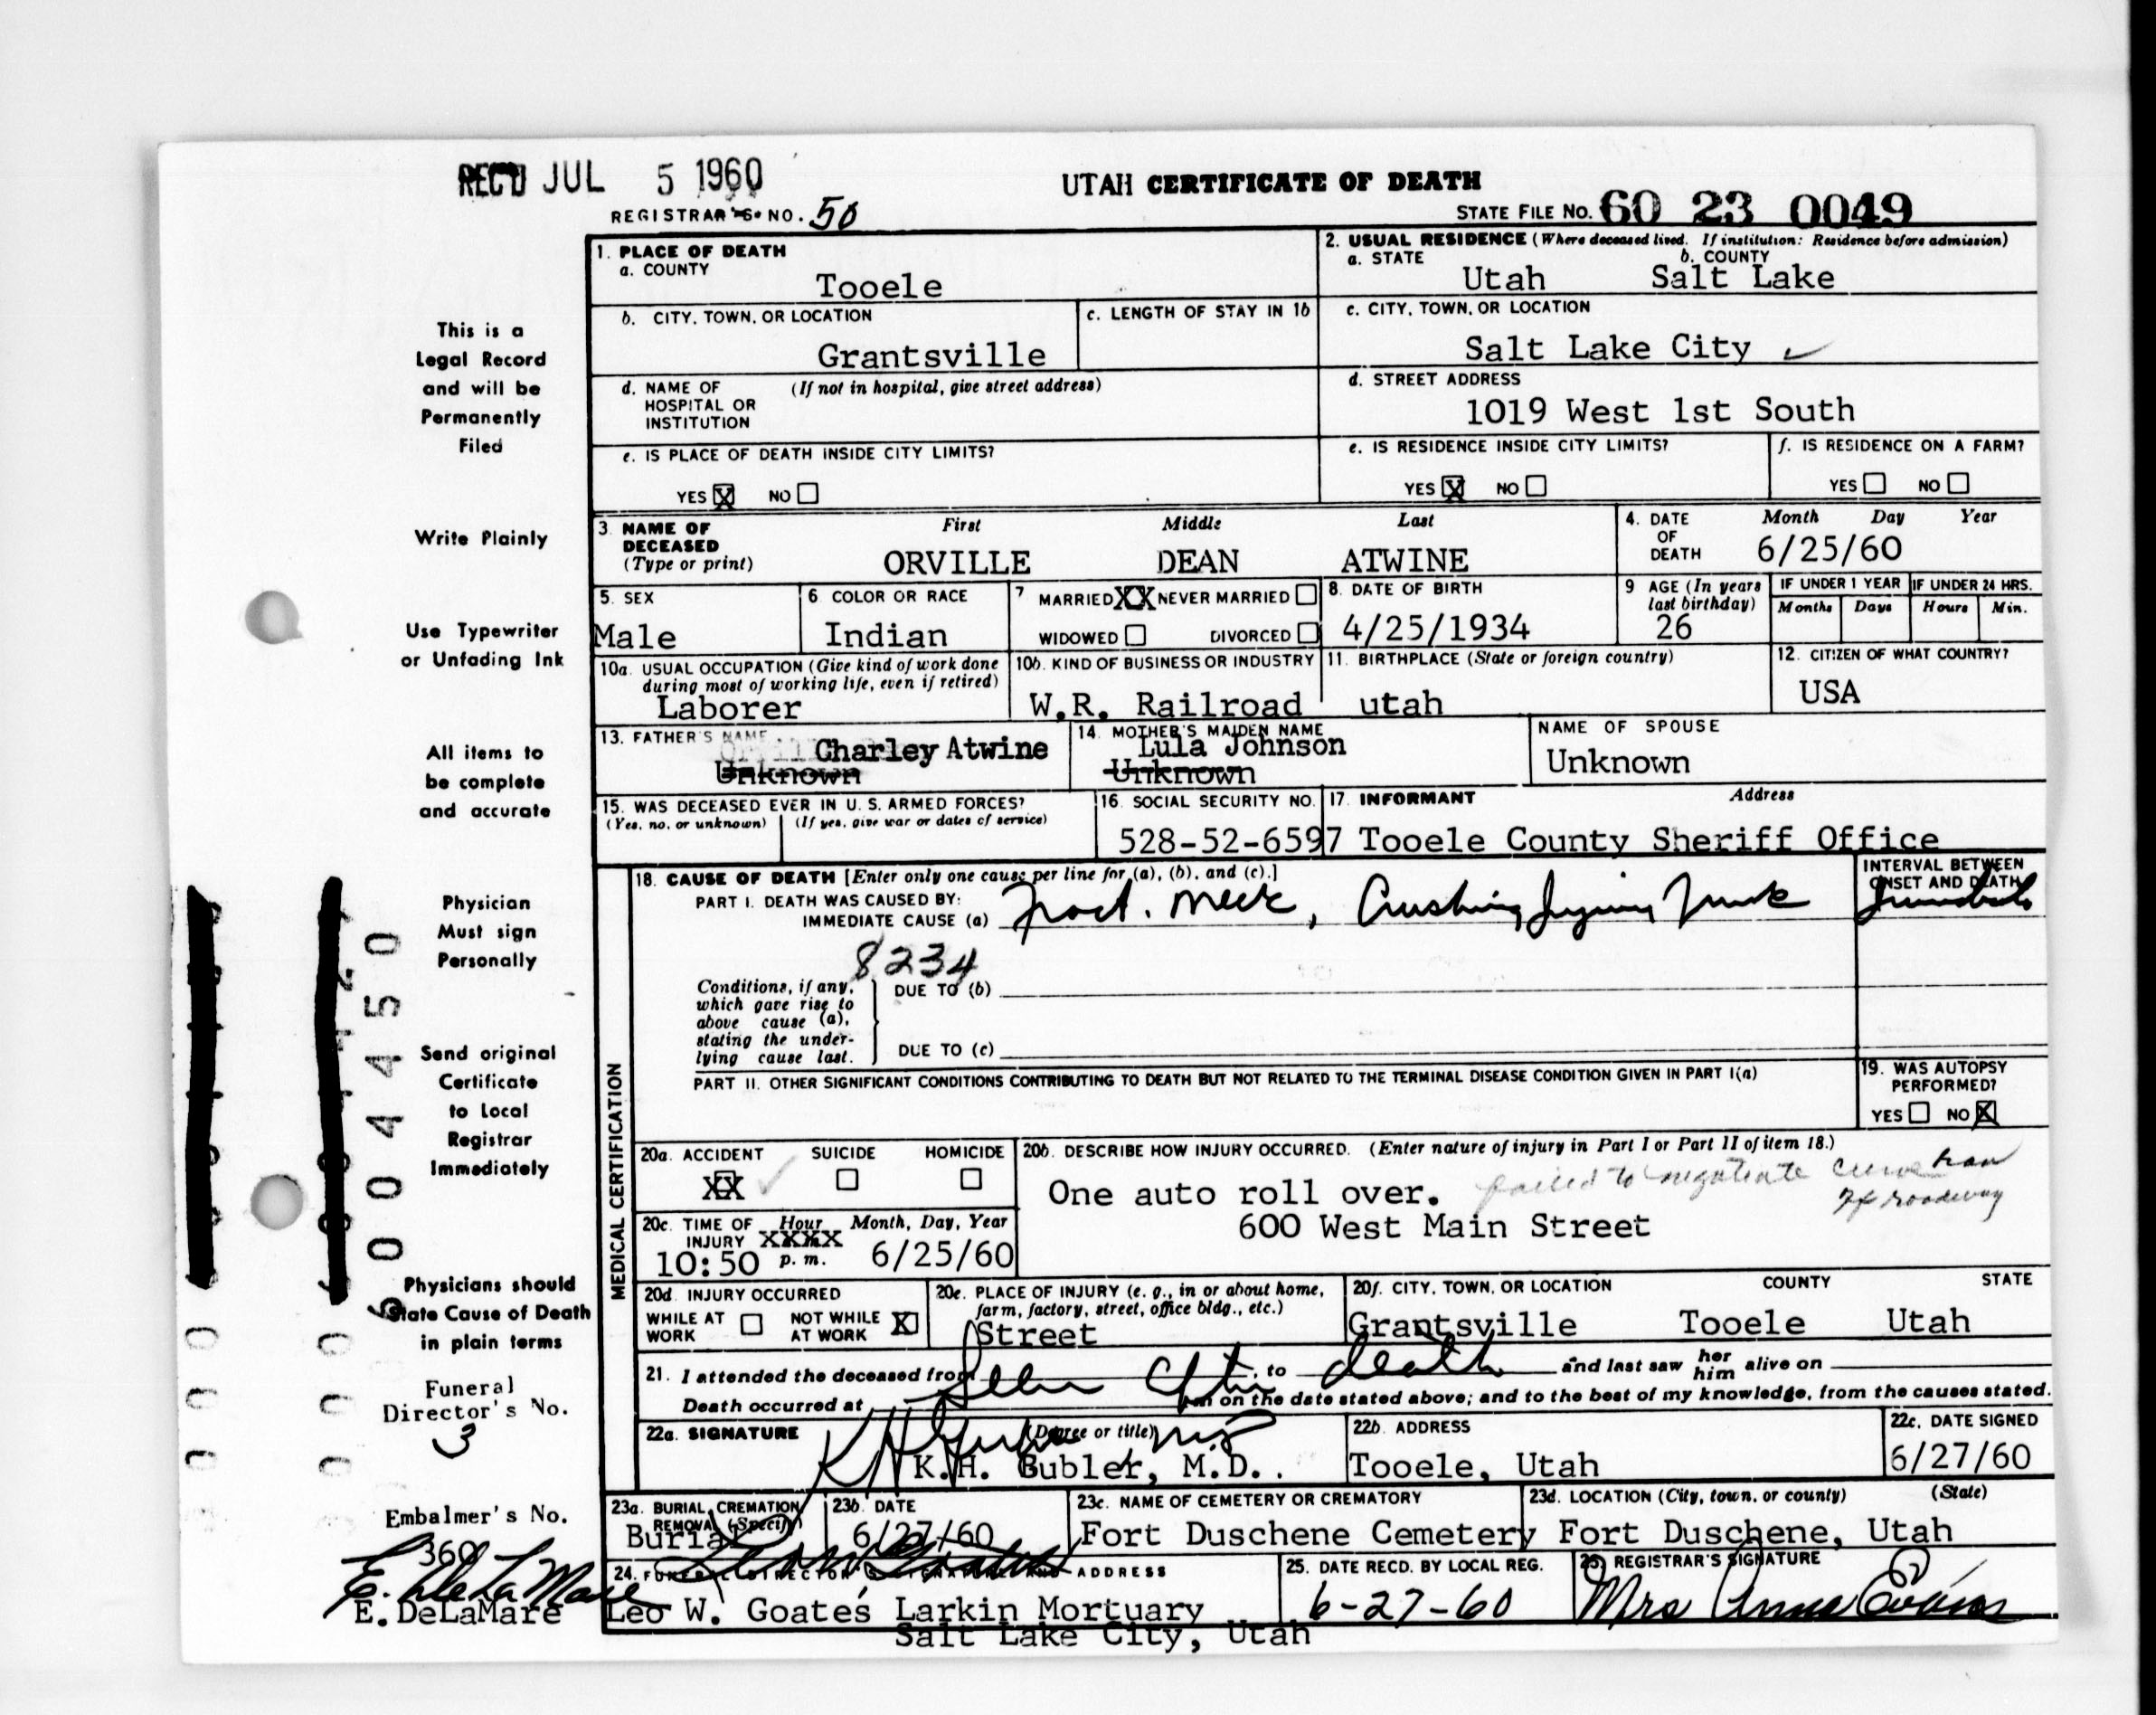 REC'D JUL 5 1960
UTAH CERTIFICATE OF DEATH
REGISTRAR'S NO. 50
STATE FILE NO. 60 23 0049
This is a
Legal Record
and will be
Permanently
Filed
Write Plainly
Use Typewriter
or Unfading Ink
All items to
be complete
and accurate
Physician
Must sign
Personally
Send original
Certificate
to Local
Registrar
Immediately
Physicians should
State Cause of Death
in plain terms
Funeral
Director's No.
3
Embalmer's No.
360
E. DeLaMare
E. DeLaMare
1. PLACE OF DEATH
a. COUNTY
Tooele
2. USUAL RESIDENCE (Where deceased lived. If institution: Residence before admission)
a. STATE b. COUNTY
Utah Salt Lake
b. CITY, TOWN, OR LOCATION
Grantsville
c. LENGTH OF STAY IN 1b
c. CITY, TOWN, OR LOCATION
Salt Lake City
d. NAME OF (If not in hospital, give street address)
HOSPITAL OR
INSTITUTION
d. STREET ADDRESS
1019 West 1st South
e. IS PLACE OF DEATH INSIDE CITY LIMITS?
YES X NO
e. IS RESIDENCE INSIDE CITY LIMITS?
YES X NO
f. IS RESIDENCE ON A FARM?
YES NO
3. NAME OF First Middle Last
DECEASED
(Type or print) ORVILLE DEAN ATWINE
4. DATE Month Day Year
OF
DEATH 6/25/60
5. SEX
Male
6. COLOR OR RACE
Indian
7 MARRIED XX NEVER MARRIED
WIDOWED DIVORCED
8. DATE OF BIRTH
4/25/1934
9 AGE (In years
last birthday)
26
IF UNDER 1 YEAR IF UNDER 24 HRS.
Months Days Hours Min.
10a. USUAL OCCUPATION (Give kind of work done
during most of working life, even if retired)
Laborer
10b. KIND OF BUSINESS OR INDUSTRY
W.R. Railroad
11. BIRTHPLACE (State or foreign country)
utah
12. CITIZEN OF WHAT COUNTRY?
USA
13. FATHER'S NAME
Charley Atwine
Unknown
14. MOTHER'S MAIDEN NAME
Lula Johnson
Unknown
NAME OF SPOUSE
Unknown
15. WAS DECEASED EVER IN U. S. ARMED FORCES?
(Yes, no, or unknown) (If yes, give war or dates of service)
16. SOCIAL SECURITY NO.
528-52-6597
17. INFORMANT Address
Tooele County Sheriff Office
MEDICAL CERTIFICATION
18. CAUSE OF DEATH [Enter only one cause per line for (a), (b), and (c).]
PART I. DEATH WAS CAUSED BY:
IMMEDIATE CAUSE (a) Fract. Neck, Crushing Injury
INTERVAL BETWEEN
ONSET AND DEATH
8234
Conditions, if any,
which gave rise to
above cause (a),
stating the under-
lying cause last.
DUE TO (b)
DUE TO (c)
PART II. OTHER SIGNIFICANT CONDITIONS CONTRIBUTING TO DEATH BUT NOT RELATED TO THE TERMINAL DISEASE CONDITION GIVEN IN PART I(a)
19. WAS AUTOPSY
PERFORMED?
YES NO X
20a. ACCIDENT SUICIDE HOMICIDE
XX
20b. DESCRIBE HOW INJURY OCCURRED. (Enter nature of injury in Part I or Part II of item 18.)
One auto roll over. failed to negotiate curve ran
off roadway
600 West Main Street
20c. TIME OF Hour Month, Day, Year
INJURY XXXX
10:50 p. m. 6/25/60
20d. INJURY OCCURRED
WHILE AT WORK NOT WHILE AT WORK X
20e. PLACE OF INJURY (e. g., in or about home,
farm, factory, street, office bldg., etc.)
Street
20f. CITY, TOWN, OR LOCATION COUNTY STATE
Grantsville Tooele Utah
21. I attended the deceased from Seen after, to death and last saw her him alive on
Death occurred at m on the date stated above; and to the best of my knowledge, from the causes stated.
22a. SIGNATURE (Degree or title)
K.H. Gubler, M.D.
22b. ADDRESS
Tooele, Utah
22c. DATE SIGNED
6/27/60
23a. BURIAL, CREMATION
REMOVAL (Specify)
Burial
23b. DATE
6/27/60
23c. NAME OF CEMETERY OR CREMATORY
Fort Duschene Cemetery
23d. LOCATION (City, town, or county) (State)
Fort Duschene, Utah
24. FUNERAL DIRECTOR'S SIGNATURE AND ADDRESS
Leo W. Goates Larkin Mortuary
Salt Lake City, Utah
25. DATE RECD. BY LOCAL REG.
6-27-60
26. REGISTRAR'S SIGNATURE
Mrs Anna Evans